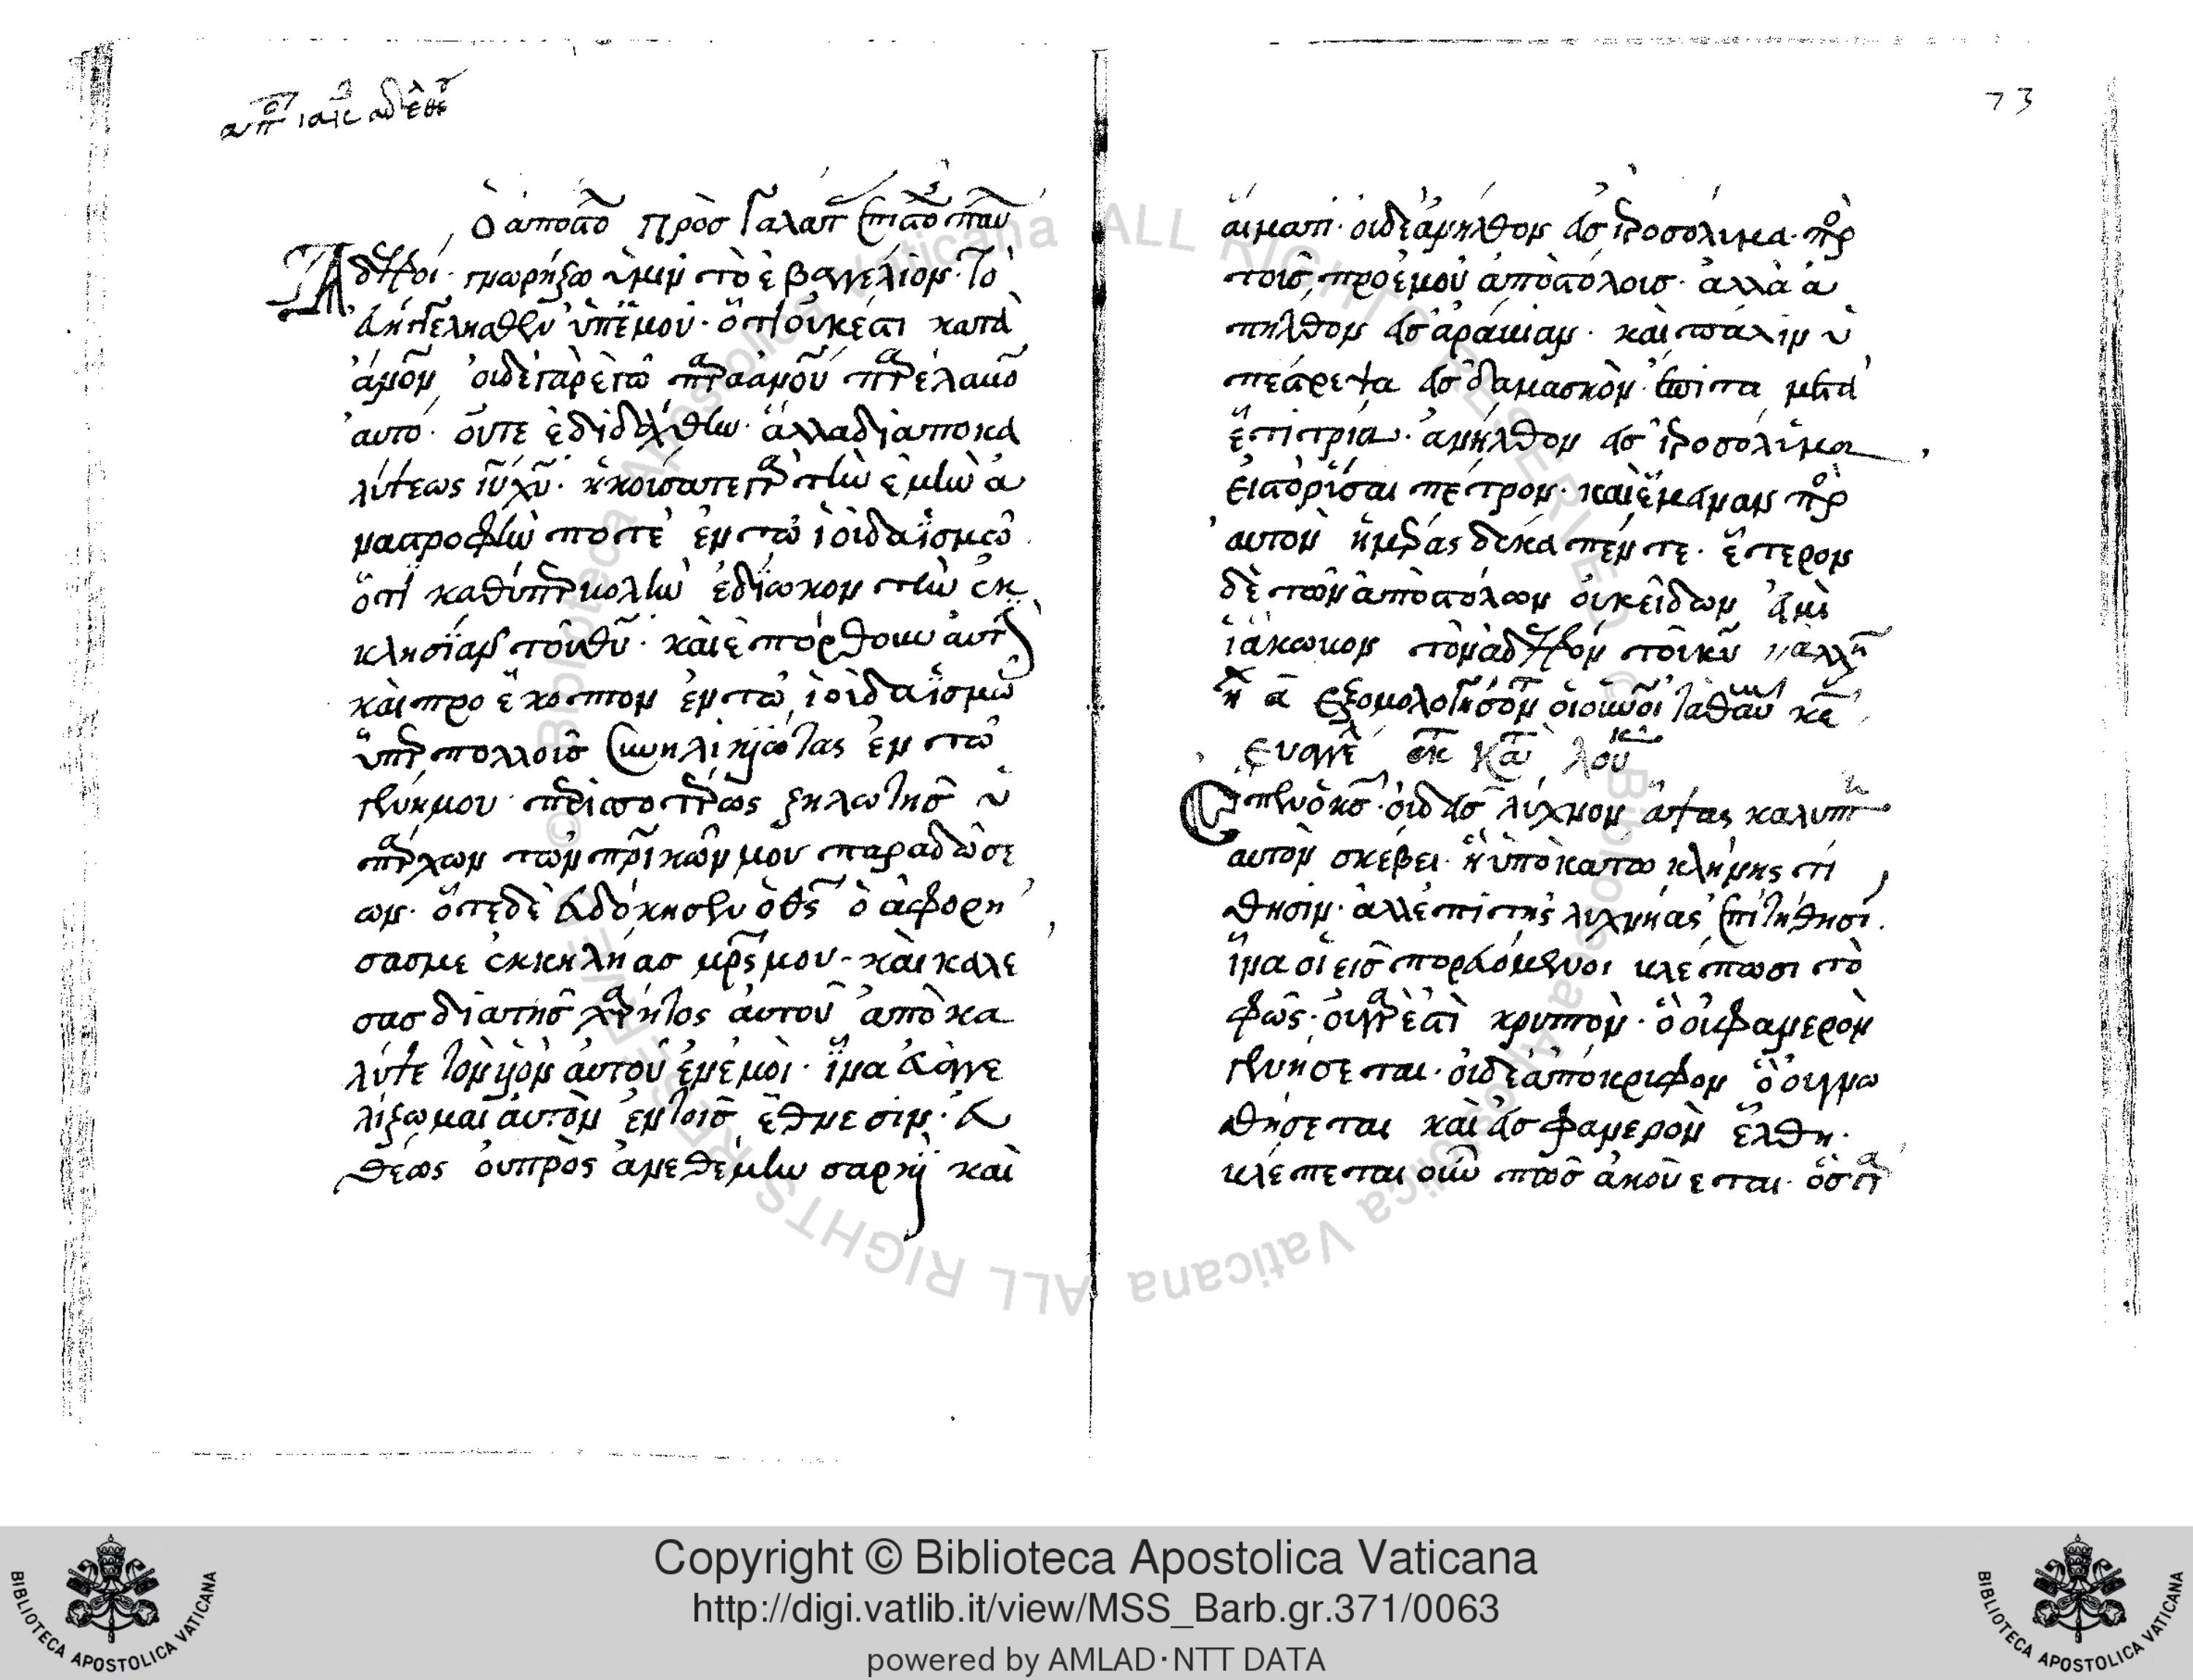 ὁ ἀποστο πρὸσ Γαλατ
Ἀδελφοί· γνωρήζω ὑμιν τὸ ἐβαγγέλιον· τὸ
ἐβηγγελησθὲν ὑπέμου· ὅτι οὐκέστι κατὰ
ἄνον οιδὲ γὰρ ἐγὼ παρα ἀνου παρέλαβο
αυτό· οὔτε ἐδιδάχθην· ἀλλα δι ἀποκα
λίψεως ιυ χυ· ἠκοίσατε γὰρ τὴν ἐμὴν ἀ
ναστροφὴν ποτὲ ἐν τῶ ἰοιδαϊσμῶ
ὅτι καθυπερβολὴν ἐδίωκον τὴν ἐκ
κλησίαν τοῦ θυ· καὶ ἐπόρθουν ἀυτὴν
καὶ προέκοπτον ἐν τῶ ἰοιδαϊσμῶ
ὑπὲρ πολλοὶσ συνηλικιώτας ἐν τῶ
γένημου· περισσοτέρως ζηλωτησ ὑ
πάρχων τῶν πρικῶν μου παραδώσε
ων· ὅτε δὲ ἐυδόκησεν ὁ θς ὁ ἀφορη
σασμε ἐκκηλήασ μρς μου· καὶ καλε
σασ διατησ χάρητος ἀυτοῦ ἀπὸκα
λύψε τὸν ὑὸν ἀυτοῦ ἐνἐμοὶ· ἵνα ἐυαγγε
λίζωμαι ἀυτὸν ἐν τοισ ἔθνεσιν· ἐυ
θέως ου πρὸς ἀνεθέμην σαρκὴ καὶ
73
αἵματι· οιδὲ ἀνηλθον εἰσ ἱεροσολιμα· πρ
τοισ προέμοῦ ἀποστόλοισ· ἀλλὰ ἀ
πηλθον εἰσ ἀραβιαν· καὶ πάλιν ὑ
πέστρεψα εἰσ δαμασκὸν· ἔπιτα μετὰ
ἔτι τρία· ἀνηλθον εἰσ ἱεροσόλιμα
ἱστορῖσαι πέτρον· καὶ ἔμειναν πρ
αυτον ἡμέρας δεκα πέντε· ἕτερον
δὲ τῶν ἀποστόλων οὐκ εἶδων εἰμὶ
ἰάκωβον τὸν ἀδελφὸν τοῦ κυ
Ευαγγε εκ Κατ λου
Εἶπεν ὁ κς· οιδεὶσ λύχνον ἅψας καλυπτ
αυτὸν σκέβει· ἢ ὑποκατω κλήνης τι
θησιν· ἀλλεπὶ τῆς λυχνηας ἐπιτήθησι·
ἵνα οἱ εισπορευόμενοι βλέπωσι τὸ
φῶς· οὐ γὰρ ἐστὶ κρυπτὸν· ὃ οὐ φανερὸν
γενήσεται· οιδὲ ἀπόκριφον ὃ οὐ γνω
θήσεται καὶ εἰσ φανερὸν ἔλθη·
βλέπεται οὖν πῶσ ἀκούεται· ὃσ γὰρ
Copyright © Biblioteca Apostolica Vaticana
http://digi.vatlib.it/view/MSS_Barb.gr.371/0063
powered by AMLAD·NTT DATA
BIBLIOTECA APOSTOLICA VATICANA
BIBLIOTECA APOSTOLICA VATICANA